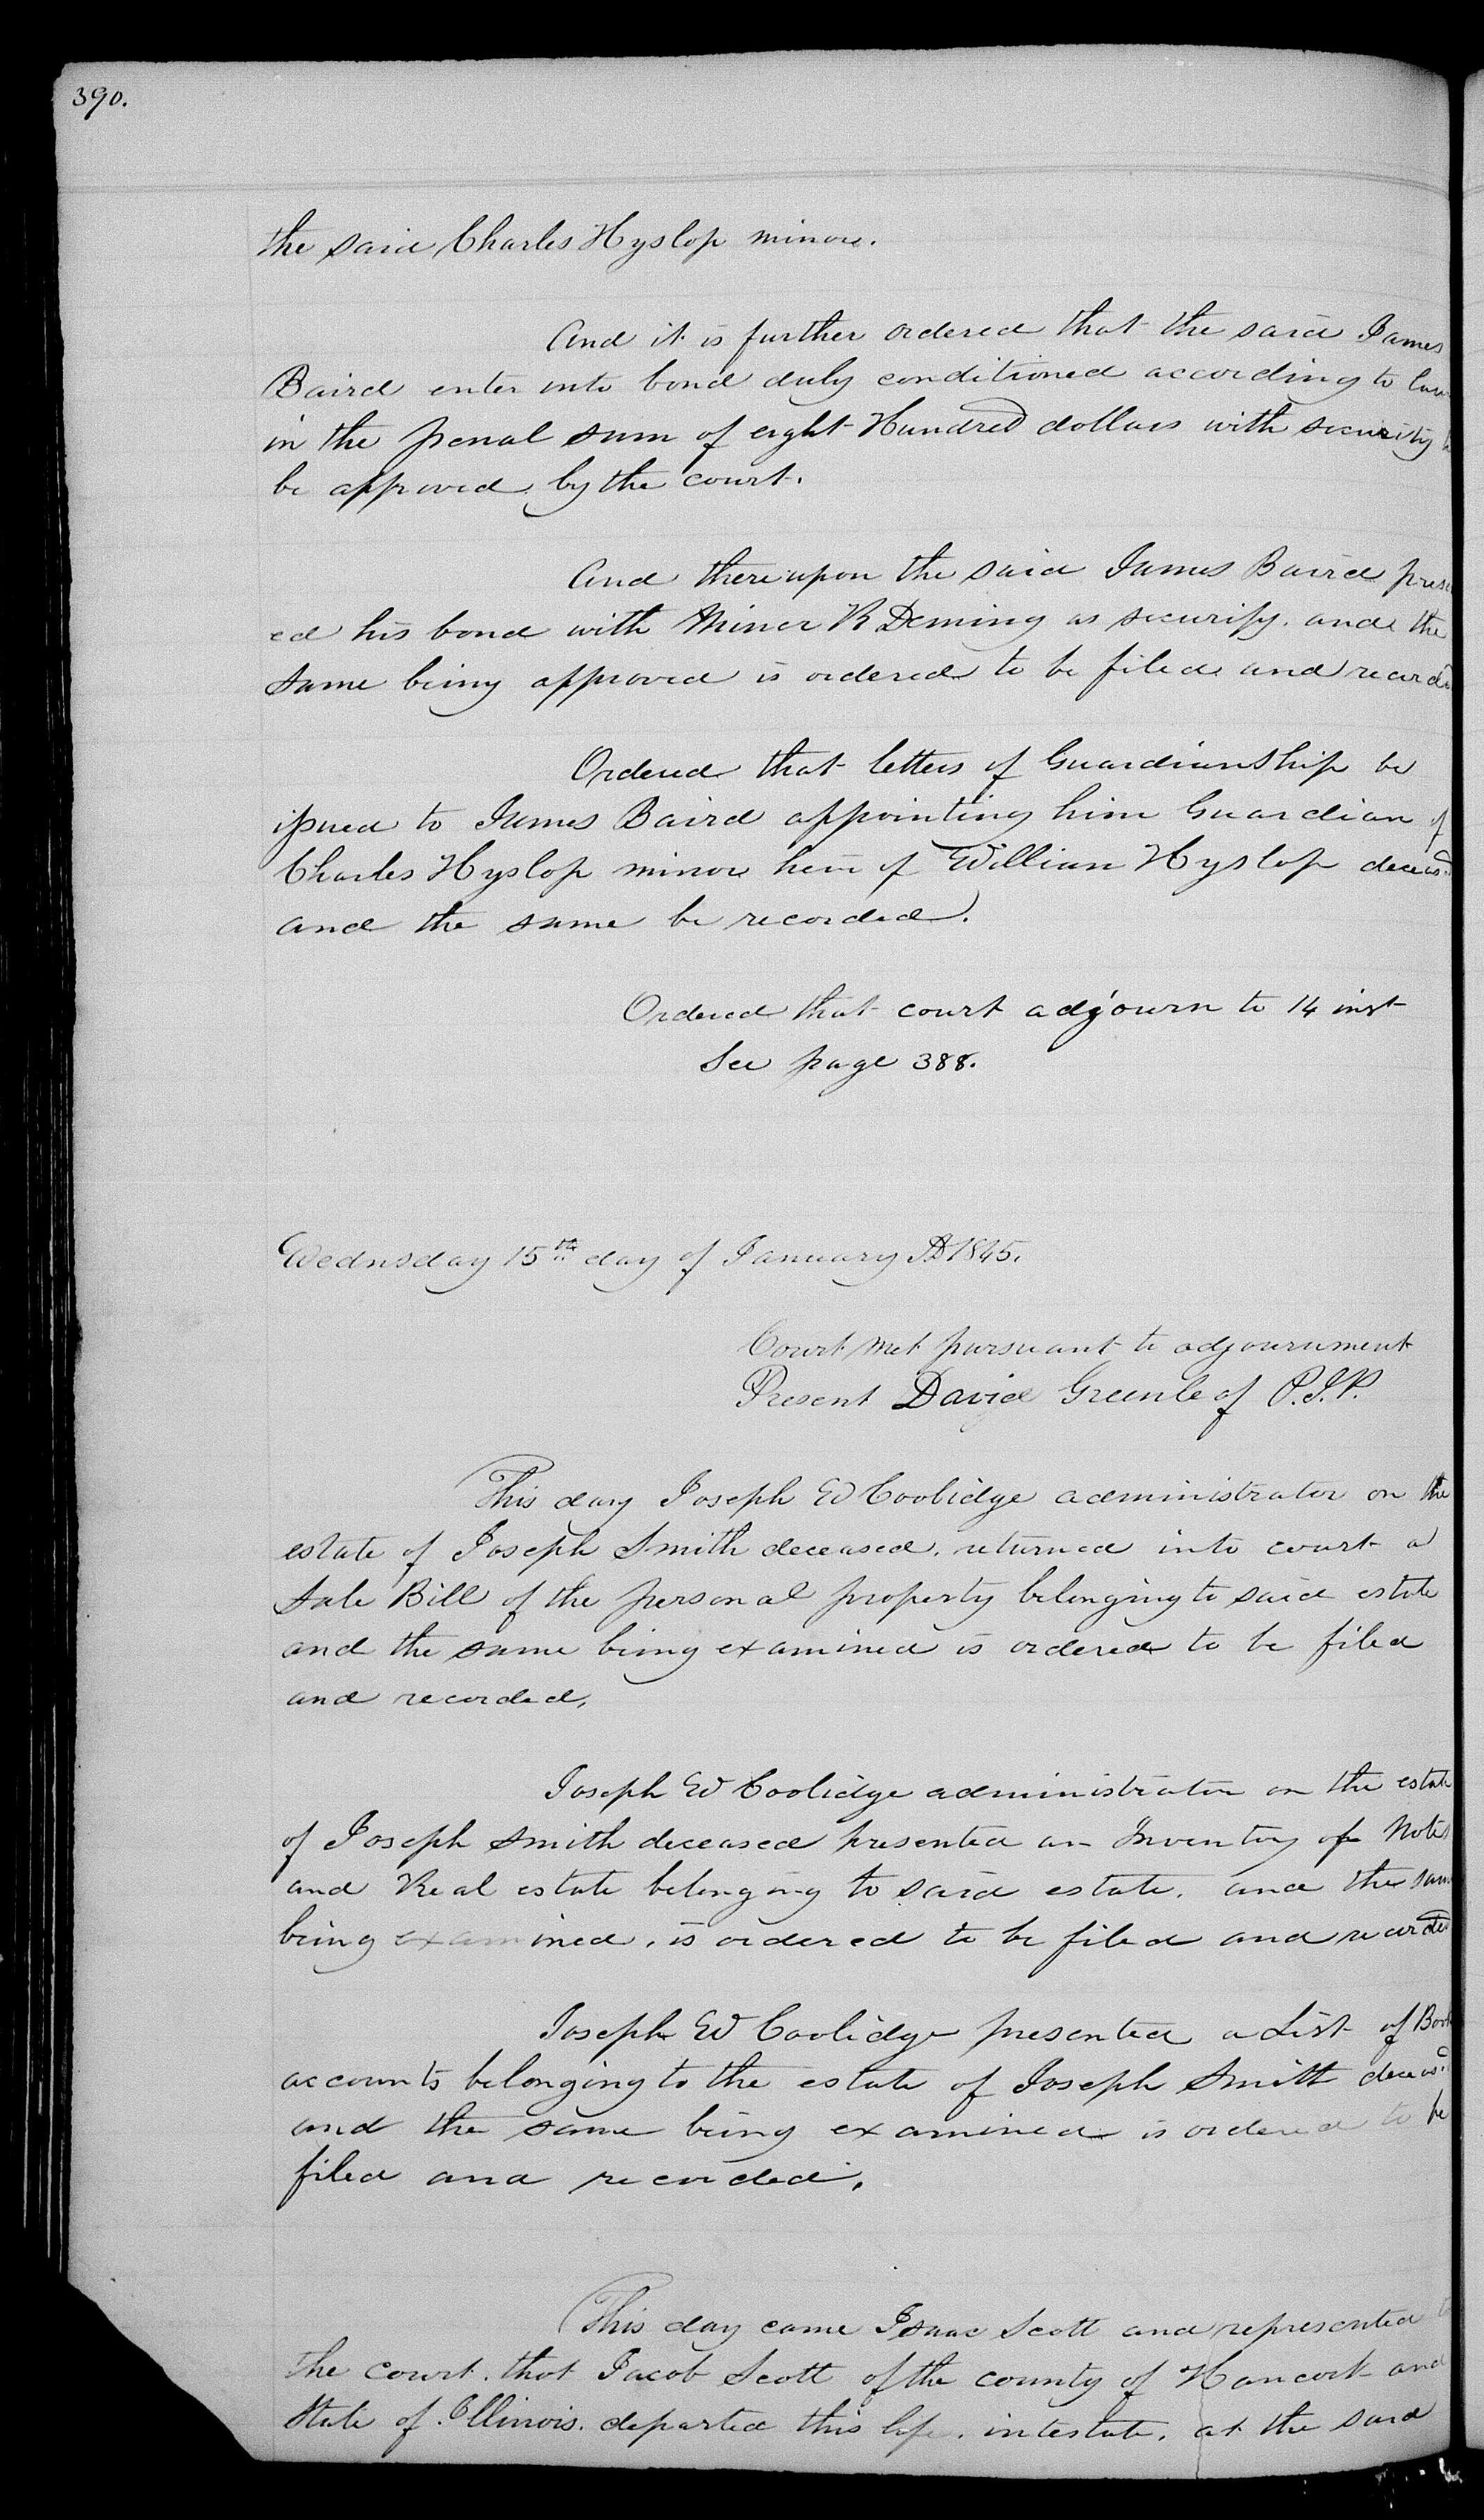 390.
the said Charles Hyslop minor.
And it is further ordered that the said James
Baird enter into bond duly conditioned according to law
in the penal sum of eight Hundred dollars with security
be approved by the court.
And thereupon the said James Baird prese
ed his bond with Minor R Deming as security. and the
same being approved is ordered to be filed and recorde
Ordered that letters of GuardianShip be
issued to James Baird appointing him Guardian of
Charles Hyslop minor heir of William Hyslop deceasd
and the same be recorded.
Ordered that court adjourn to 14 inst
See page 388.
Wednsday 15th day of January AD 1845.
Court met pursuant to adjournment
Present David Greenleaf P.J.P.
This day Joseph W Coolidge administrator on the
estate of Joseph Smith deceased. returned into court a
Sale Bill of the personal property belonging to said estate
and the same being examined is ordered to be filed
and recorded.
Joseph W Coolidge administrator on the estate
of Joseph Smith deceased presented an Inventory of Notes
and Real estate belonging to said estate. and the same
being examined, is ordered to be filed and recorded
Joseph W Coolidge presented a List of Book
accounts belonging to the estate of Joseph Smith deceasd
and the same being examined is ordered to be
filed and recorded.
This day came Isaac Scott and represented to
the court. that Jacob Scott of the county of Hancock and
State of Illinois. departed this life. intestate. at the said